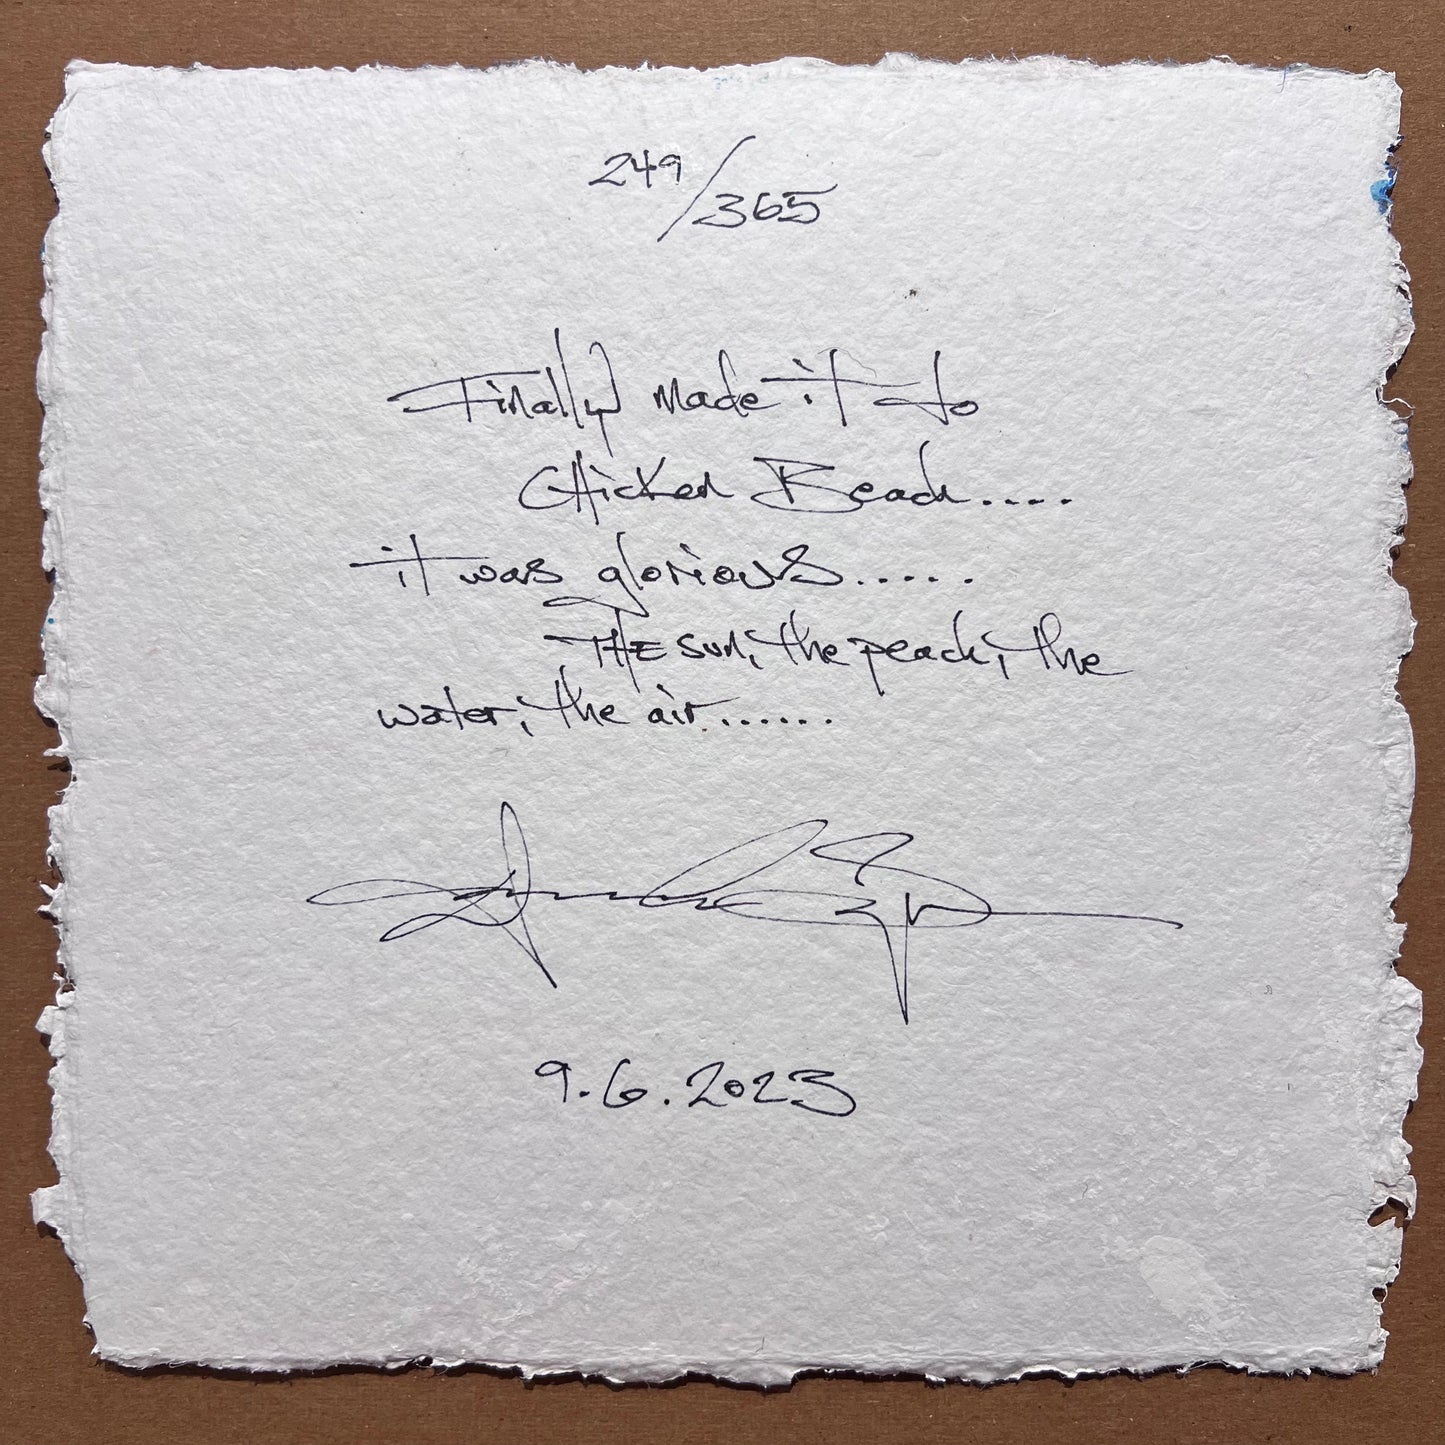 249/365
Finally made it to
Chicken Beach....
it was glorious.....
THE sun, the peach, the
water, the air......
9.6.2023